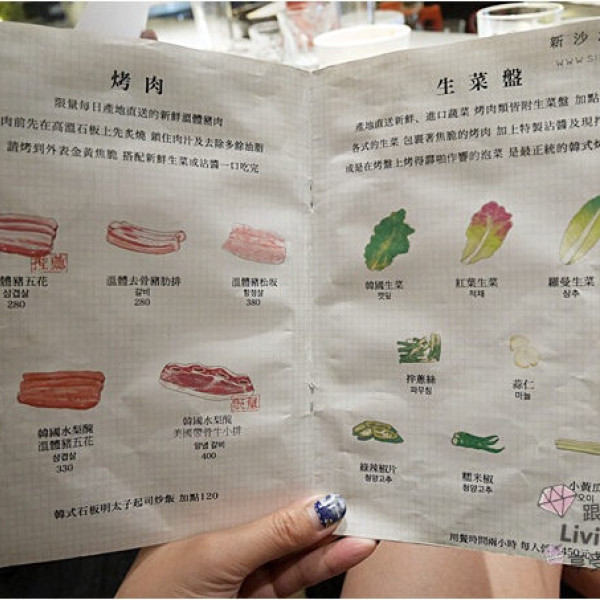 烤肉
限量每日產地直送的新鮮溫體豬肉
肉前先在高溫石板上先炙燒 鎖住肉汁及去除多餘油脂
請烤到外表金黃焦脆 搭配新鮮生菜或沾醬一口吃完
推薦
體豬五花
삼겹살
280
溫體去骨豬肋排
갈비
280
溫體豬松坂
항정살
380
韓國水梨醃
溫體豬五花
삼겹살
330
韓國水梨醃
美國帶骨牛小排
양념 갈비
400
韓式石板明太子起司炒飯 加點120
新沙
WWW.S
生菜盤
產地直送新鮮、進口蔬菜 烤肉類皆附生菜盤 加點
各式的生菜 包裹著焦脆的烤肉 加上特製沾醬及現
或是在烤盤上烤得霹啪作響的泡菜 是最正統的韓式
韓國生菜
깻잎
紅葉生菜
적채
羅曼生菜
상추
拌蔥絲
파무침
蒜仁
마늘
綠辣椒片
청양고추
糯米椒
청양고추
小黃瓜
오이
用餐時間兩小時 每人 450元
跟
Livi